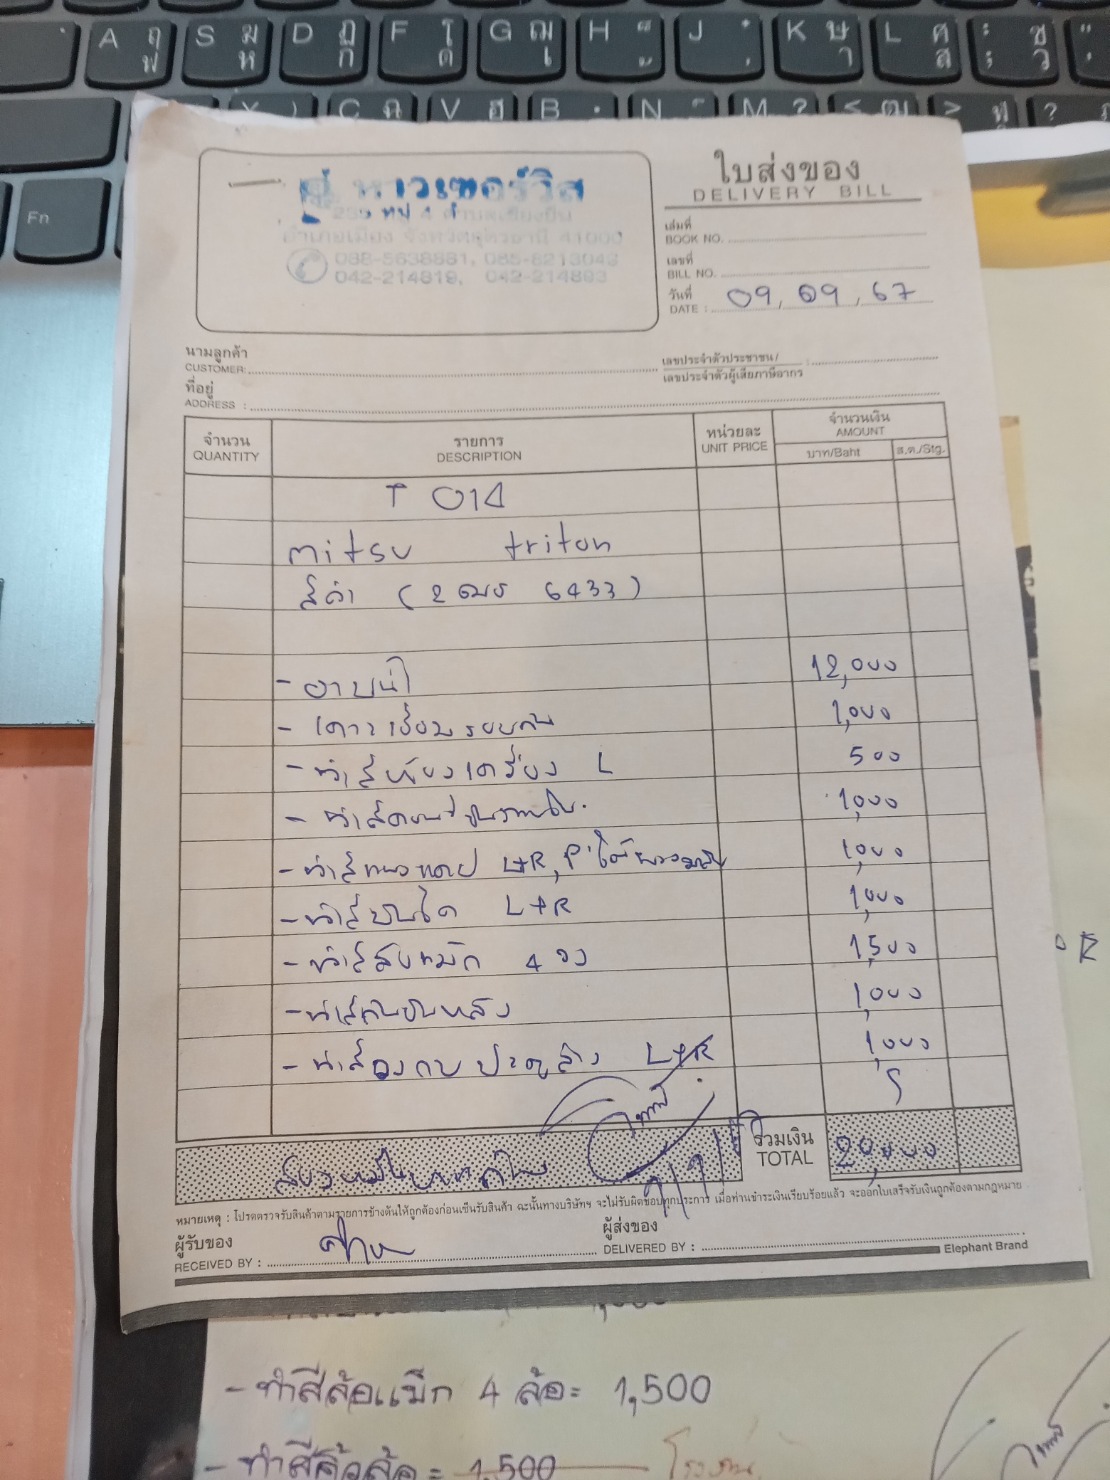 A S D F G H J K L
C V B N M
Fn
อู่ นาวเซอร์วิส
259 หมู่ 4 ตำบลเชียงยืน
อำเภอเมือง จังหวัดอุดรธานี 41000
042-214819, 042-214893
ใบส่งของ
DELIVERY BILL
เล่มที่
BOOK NO.
เลขที่
BILL NO.
วันที่
DATE : 09, 09, 67
นามลูกค้า
CUSTOMER:
เลขประจำตัวประชาชน/
เลขประจำตัวผู้เสียภาษีอากร :
ที่อยู่
ADDRESS :
จำนวน รายการ หน่วยละ จำนวนเงิน
QUANTITY DESCRIPTION UNIT PRICE AMOUNT
บาท/Baht ส.ต./Stg.
T 014
mitsu triton
สีดำ ( 2 ฒร 6433 )
- อาบน้ำ 12,000
- เคาะเชื่อมรอบคัน 1,000
- ทำสีห้องเครื่อง L 500
- ทำสี 1,000
- ทำสี L+R, 1,000
- ทำสีบันได L+R 1,000
- ทำสีล้อแม็ก 4 วง 1,500
- ทำสีกันชนหลัง 1,000
- ทำสี ประตูล่าง L+R 1,000
รวมเงิน
TOTAL 20,000
หมายเหตุ : โปรดตรวจรับสินค้าตามรายการข้างต้นให้ถูกต้องก่อนเซ็นรับสินค้า ฉะนั้นทางบริษัทฯ จะไม่รับผิดชอบทุกประการ เมื่อท่านชำระเงินเรียบร้อยแล้ว จะออกใบเสร็จรับเงินถูกต้องตามกฎหมาย
ผู้รับของ ผู้ส่งของ
RECEIVED BY : DELIVERED BY :
Elephant Brand
- ทำสีล้อแม็ก 4 ล้อ = 1,500
- ทำสี = 1,500